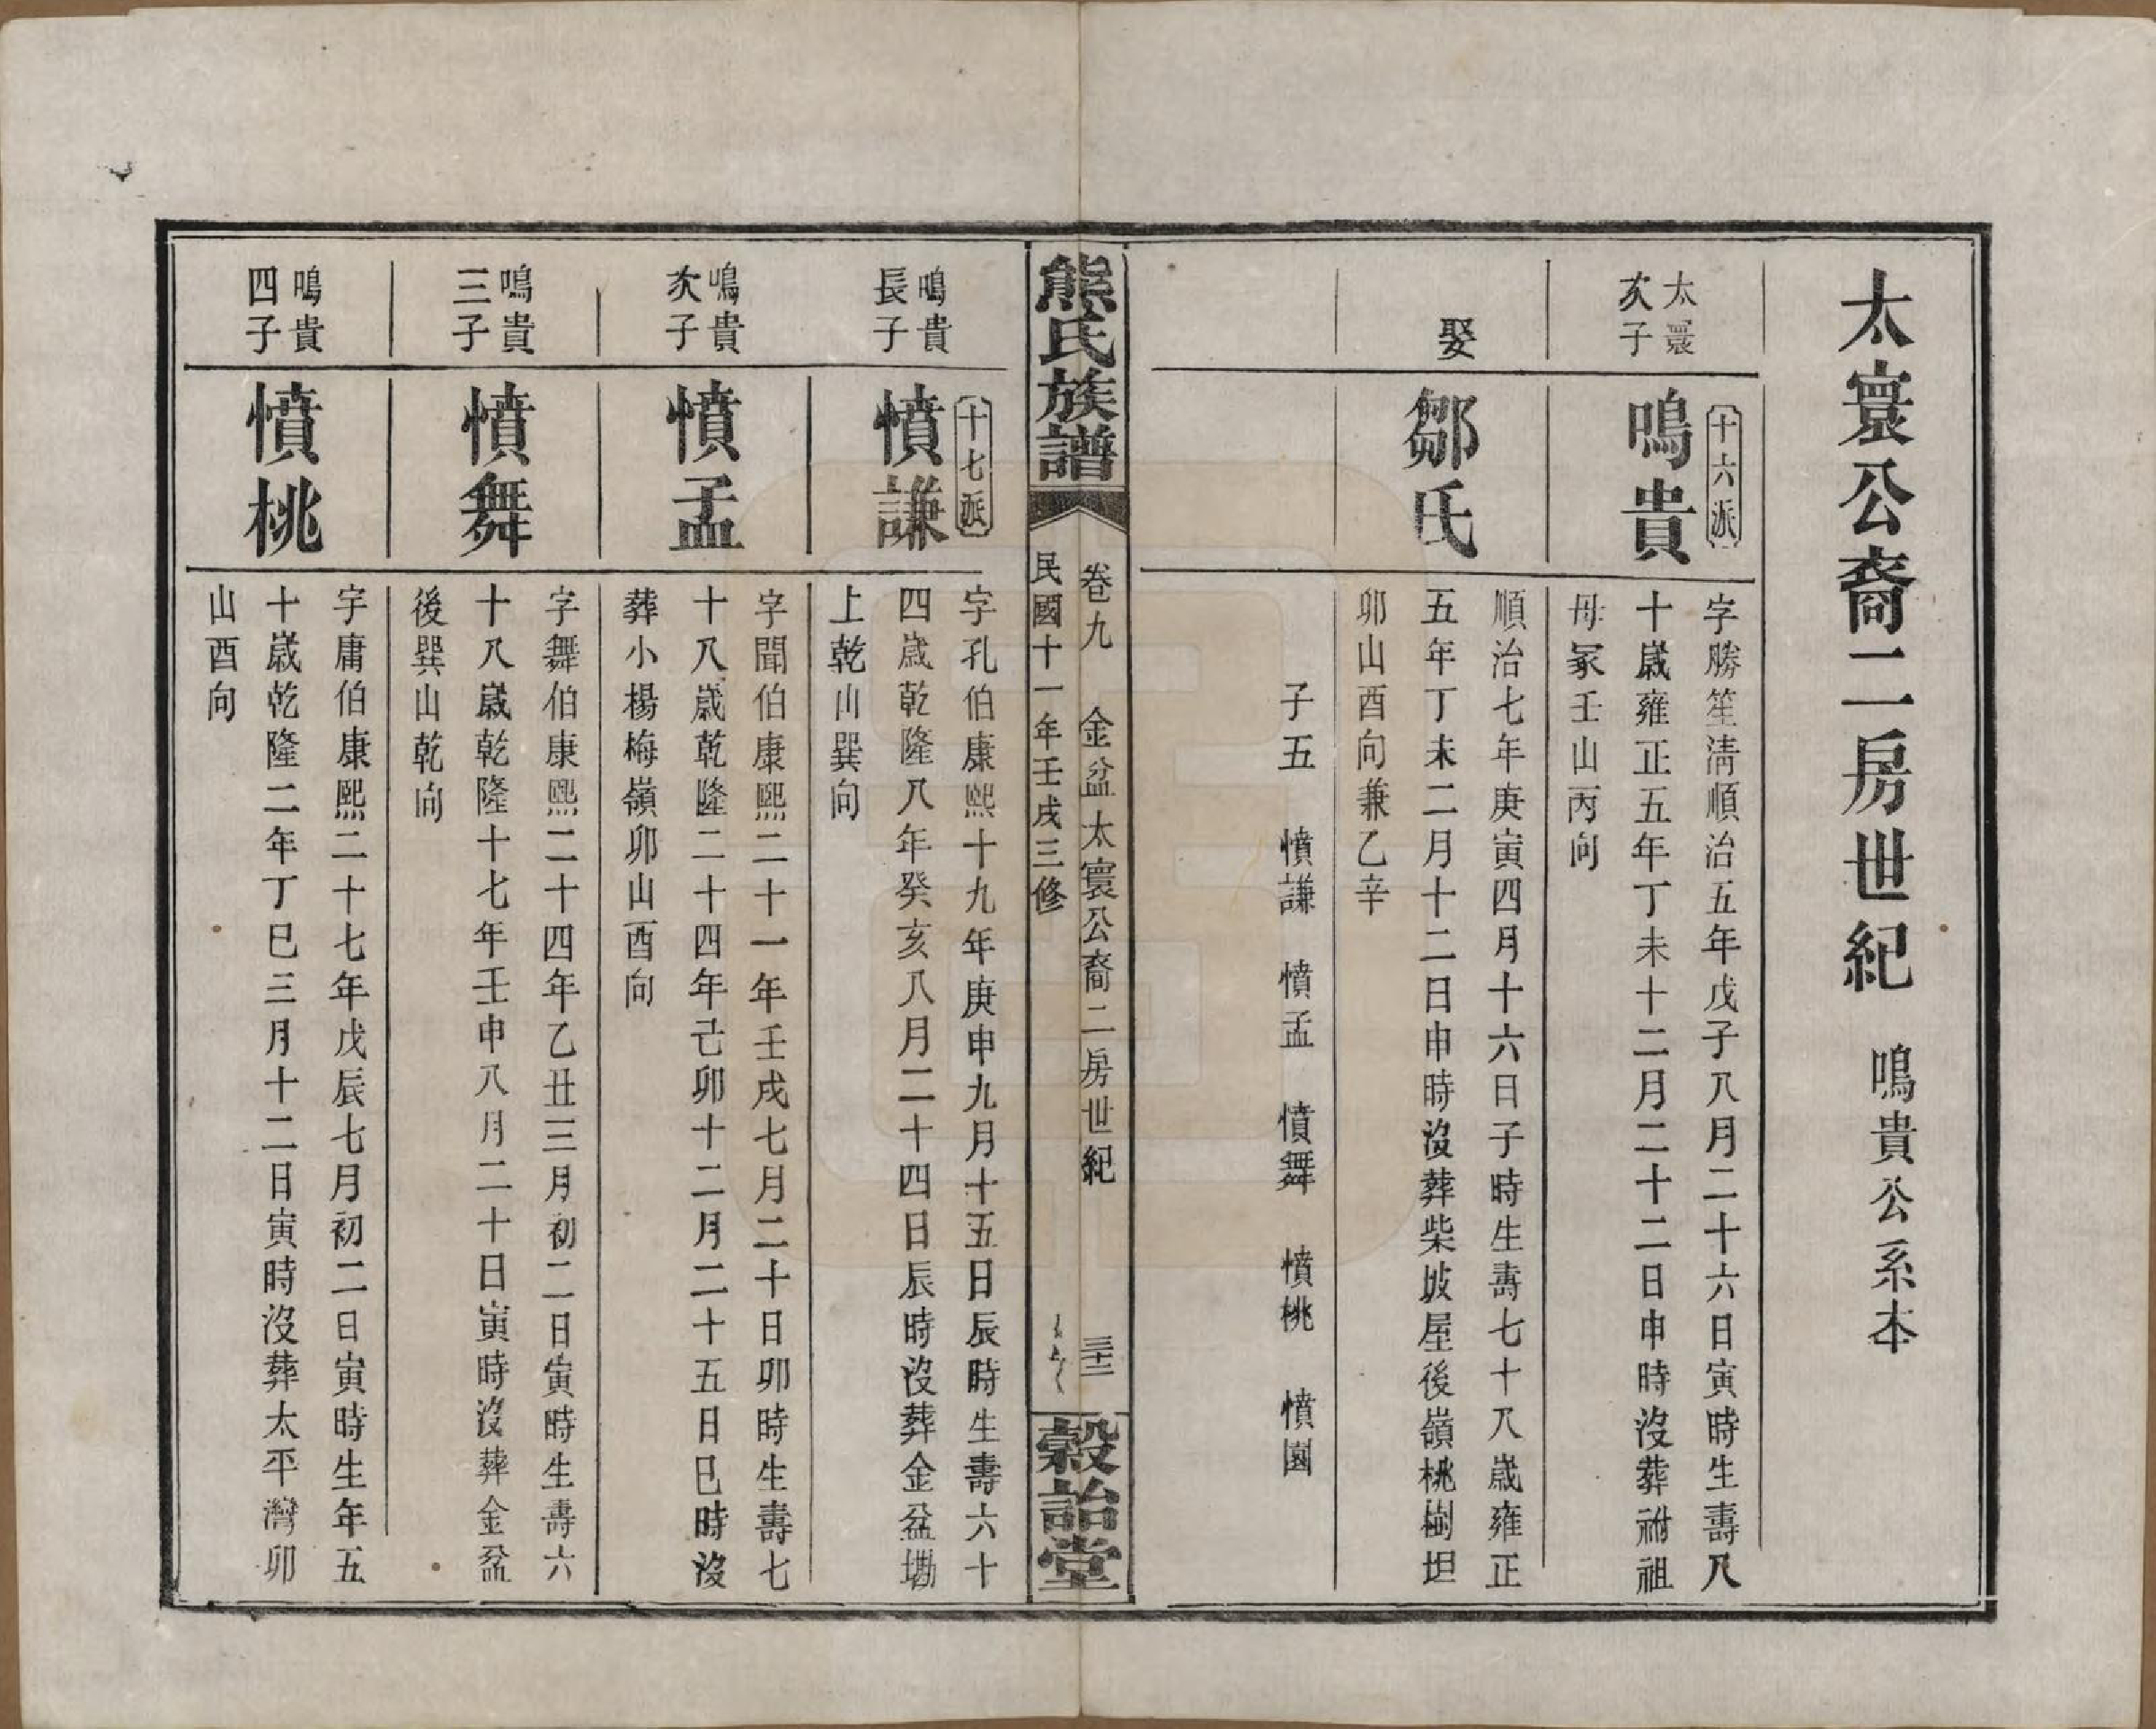 太寰公裔二房世紀　鳴貴公系本
太寰
次子
十六派
鳴貴
字勝笙淸順治五年戊子八月二十六日寅時生壽八
十歲雍正五年丁未十二月二十二日申時沒葬祔祖
母冢壬山丙向
娶
鄒氏
順治七年庚寅四月十六日子時生壽七十八歲雍正
五年丁未二月十二日申時沒葬柴坡屋後嶺桃樹坦
卯山酉向兼乙辛
子五　憤謙　憤孟　憤舞　憤桃　憤園
熊氏族譜
卷九　金盆太寰公裔二房世紀　三十二
民國十一年壬戌三修
穀詒堂
鳴貴
長子
十七派
憤謙
字孔伯康熙十九年庚申九月十五日辰時生壽六十
四歲乾隆八年癸亥八月二十四日辰時沒葬金盆塅
上乾山巽向
鳴貴
次子
憤孟
字聞伯康熙二十一年壬戌七月二十日卯時生壽七
十八歲乾隆二十四年己卯十二月二十五日巳時沒
葬小楊梅嶺卯山酉向
鳴貴
三子
憤舞
字舞伯康熙二十四年乙丑三月初二日寅時生壽六
十八歲乾隆十七年壬申八月二十日寅時沒葬金盆
後巽山乾向
鳴貴
四子
憤桃
字庸伯康熙二十七年戊辰七月初二日寅時生年五
十歲乾隆二年丁巳三月十二日寅時沒葬太平灣卯
山酉向